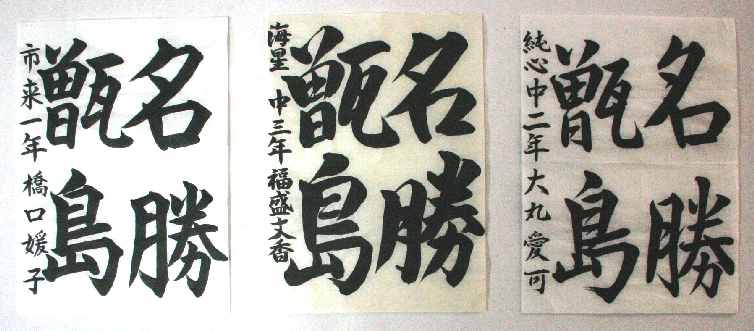 名勝
甑島
市来一年橋口媛子
名勝
甑島
海星中三年福盛文香
名勝
甑島
純心中二年大丸愛可